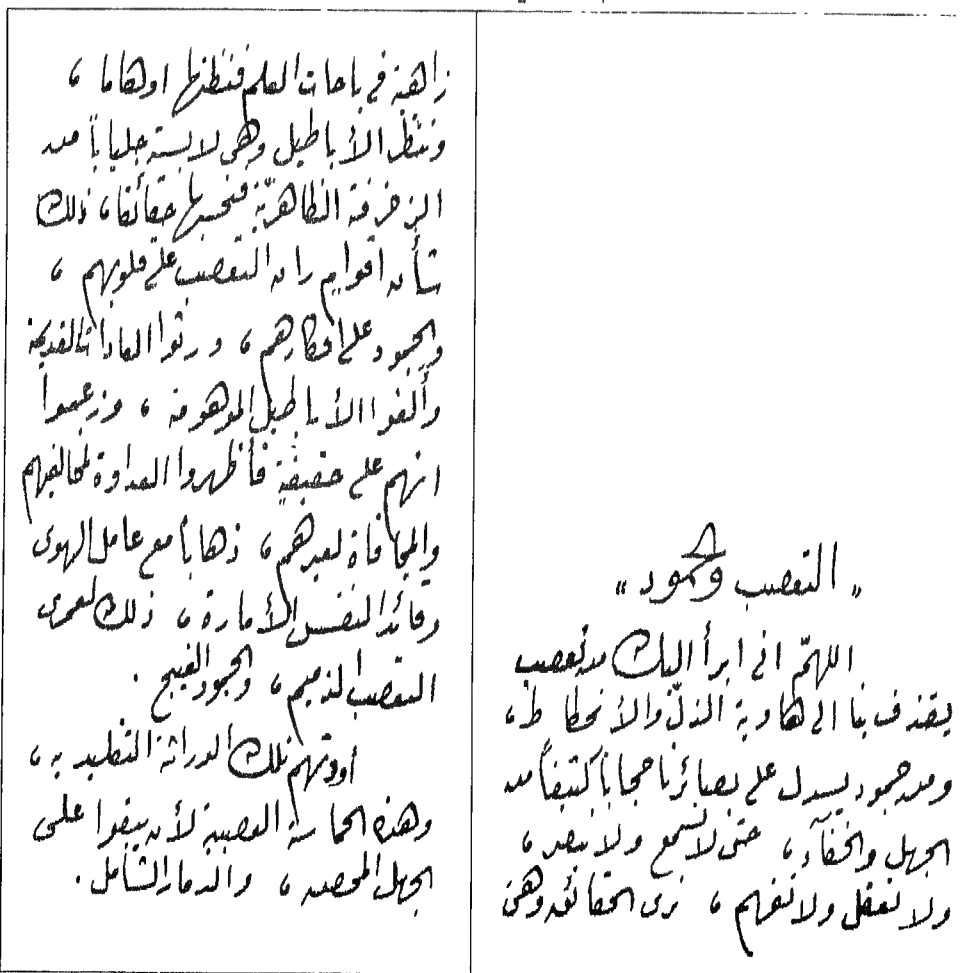 « التعصب والجمود »
اللهمّ اني ابرأ اليك من تعصب
يقذف بنا الى هاوية الذلّ والأنحطاط،
ومن جمود يسدل على بصائرنا حجاباً كثيفاً من
الجهل والخفآء، حتى لا نسمع ولا نبصر،
ولا نعقل ولا نفهم، نرى الحقائق وهي
زاهية في باحات العلم فنظنها اوهاما،
وننظر الأباطيل وهي لابسة جلباباً من
الزخرفة الظاهريّة فنحسبها حقائقا، ذلك
شأن اقوام ران التعصب على قلوبهم،
والجمود على افكارهم، ورثوا العادات القديمة
وألفوا الأباطيل الموهومة، وزعموا
انهم على حقيقةٍ فأظهروا العداوة لمخالفيهم
والمجافاة لغيرهم، ذهاباً مع عامل الهوى
وقائد النفس الأمارة، ذلك لعمري
التعصب الذميم، والجمود القبيح.
تلك الوراثة التقليدية،
وهذه العصبية لأن يبقوا على
الجهل المحض، والدمار الشامل.